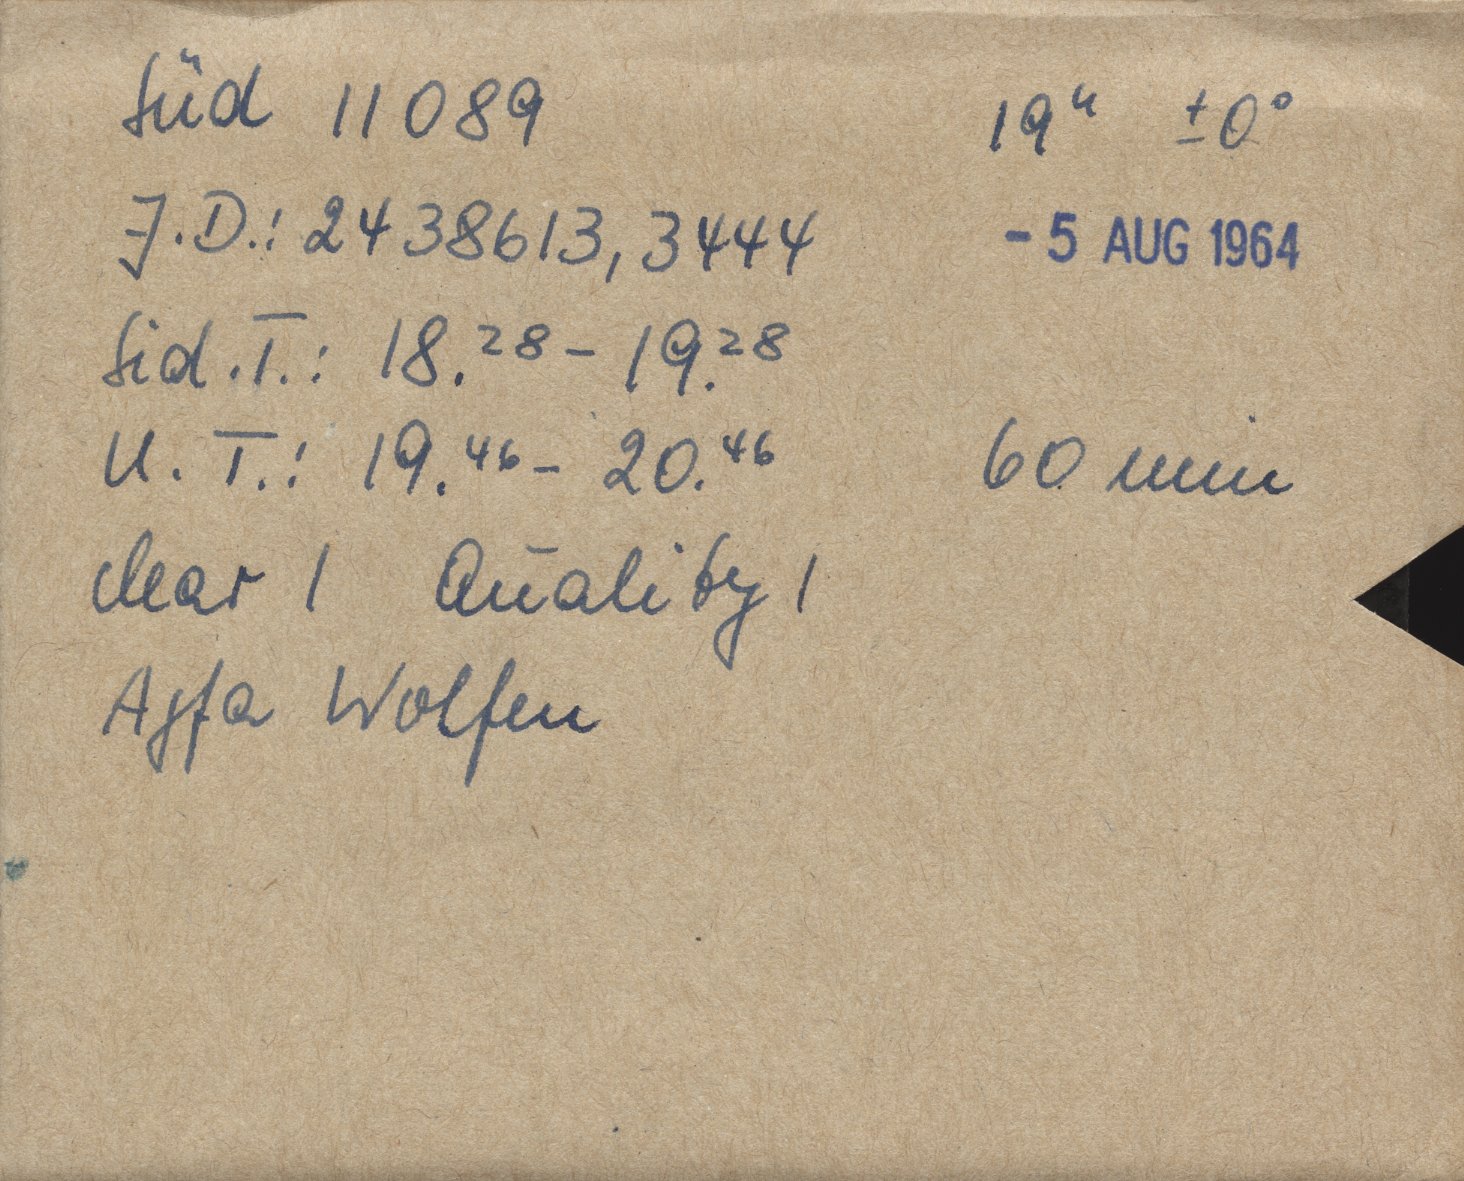 Süd 11089 19ʰ ±0°
J.D.: 2438613,3444 - 5 AUG 1964
Sid.T.: 18.²⁸ – 19.²⁸
U.T.: 19.⁴⁶ – 20.⁴⁶ 60 min
clear 1 Quality 1
Agfa Wolfen